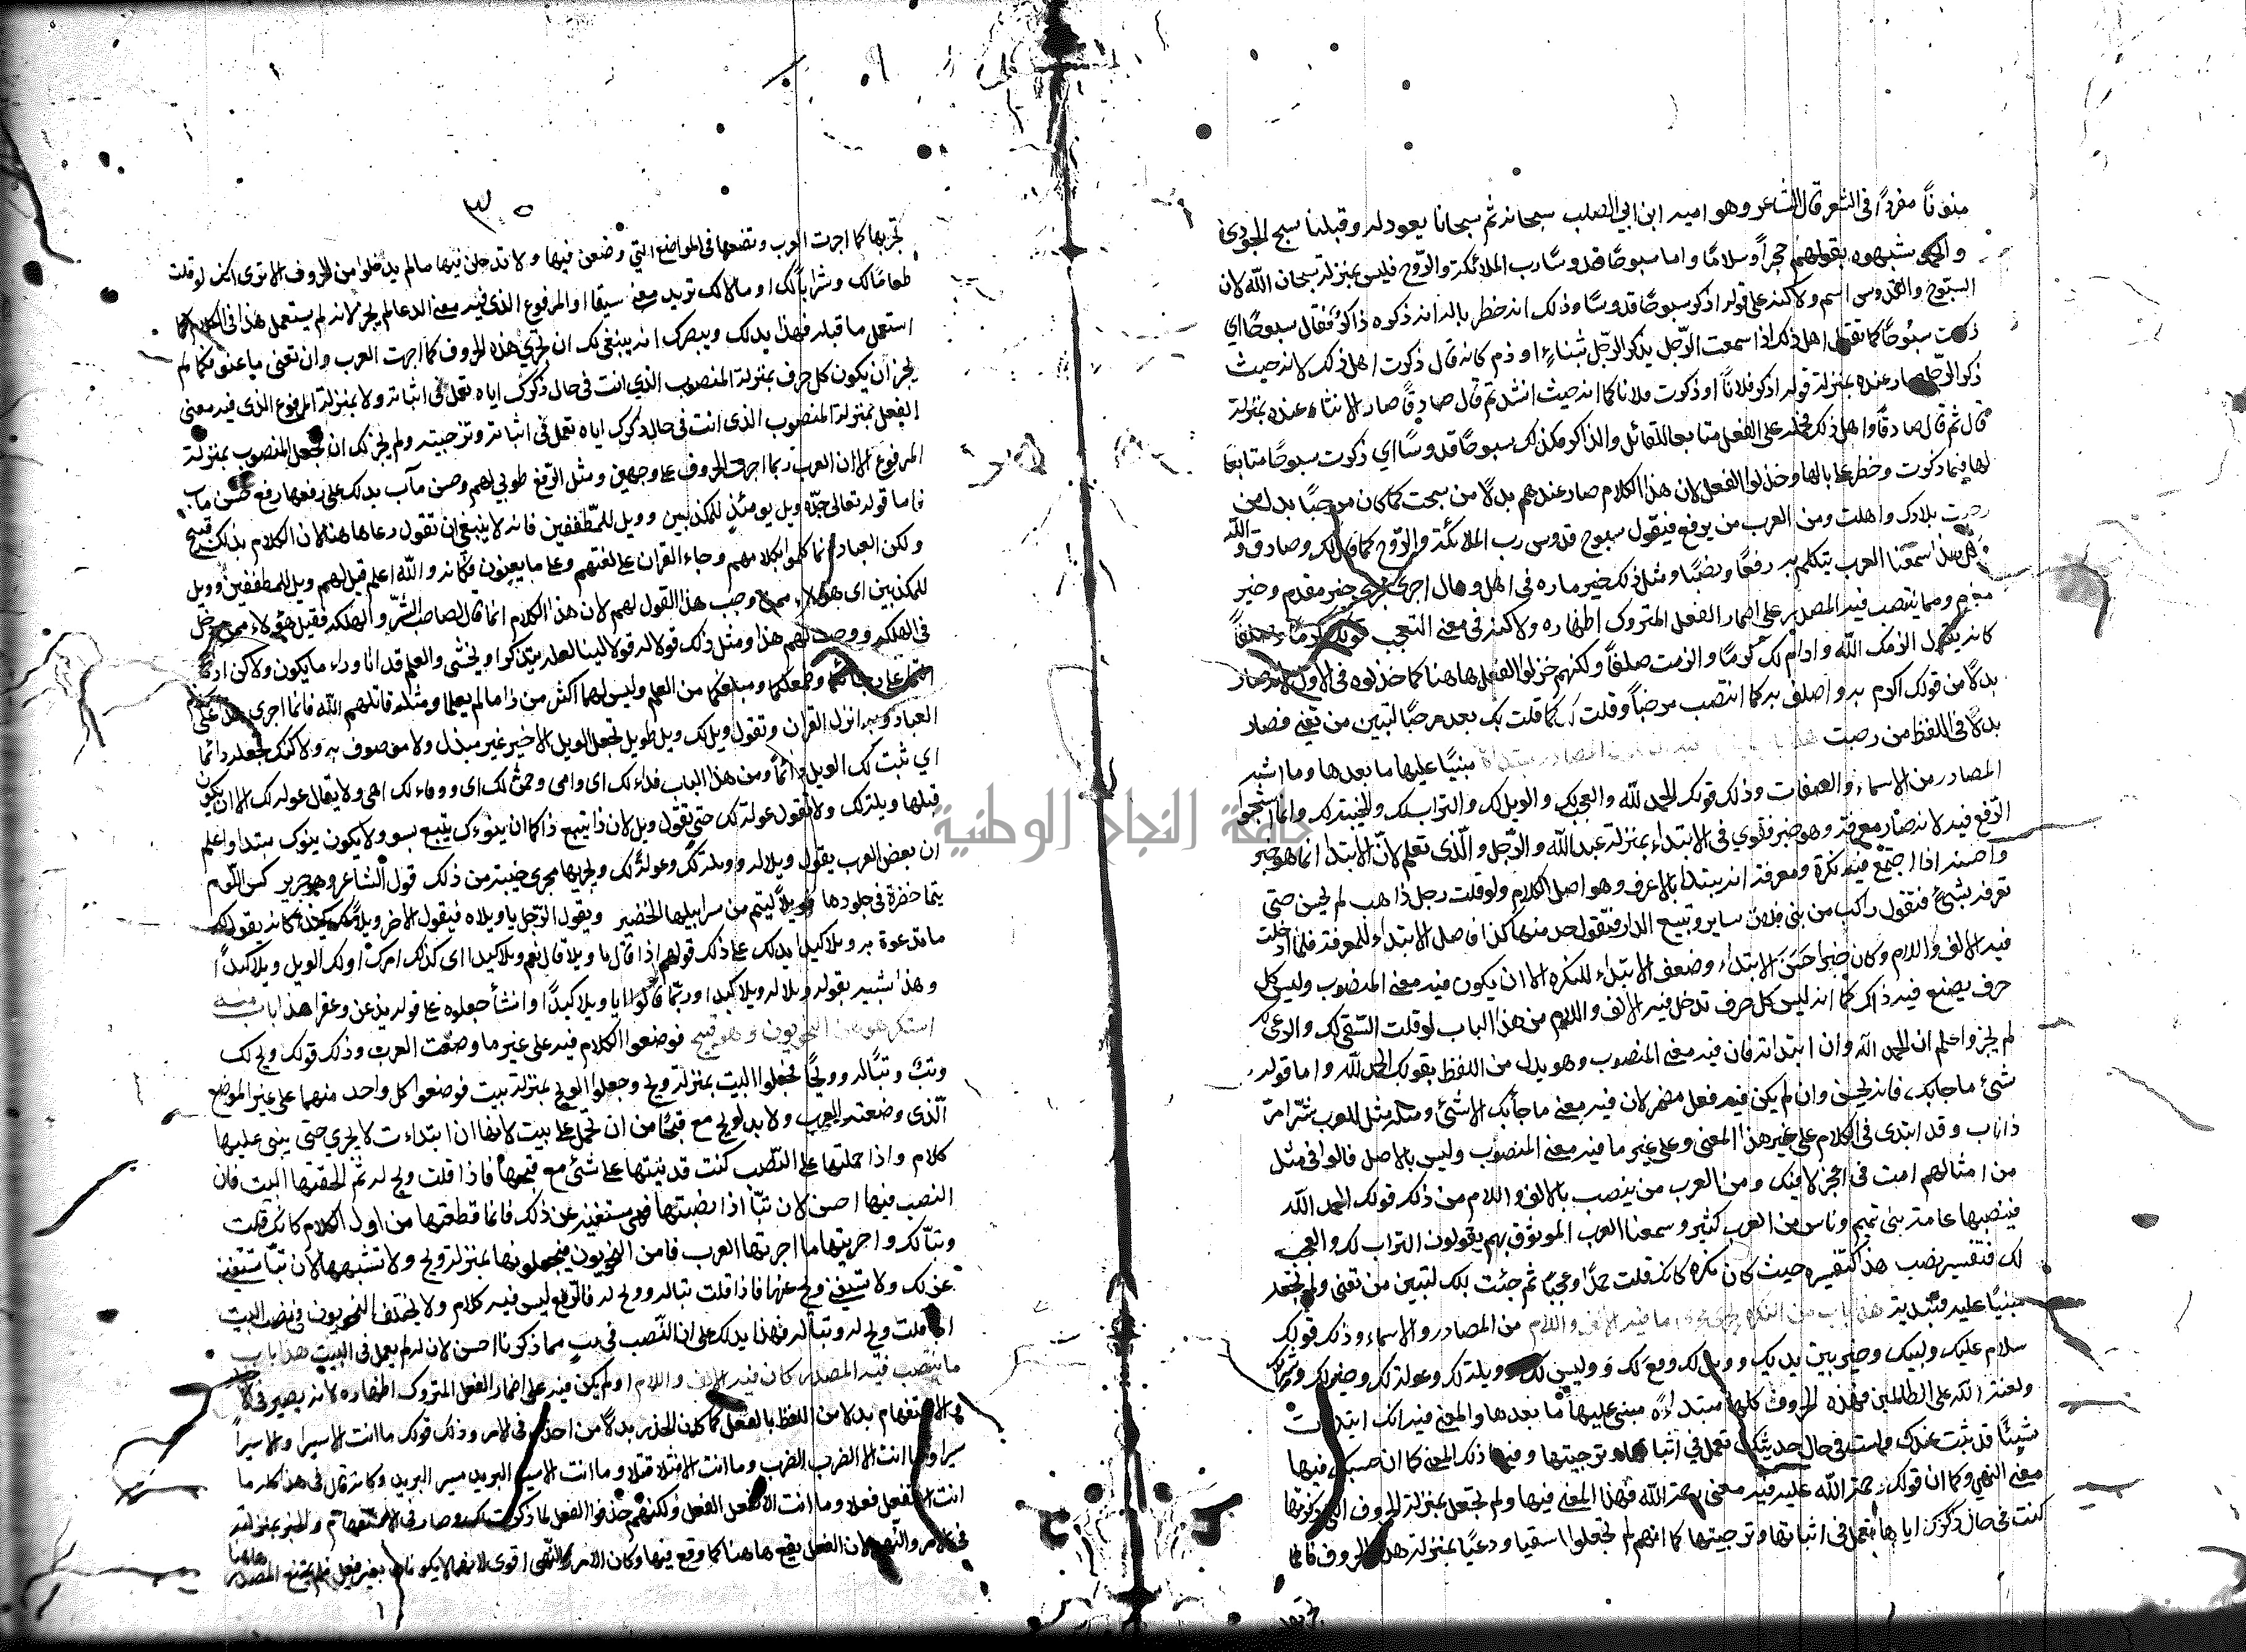 منونًا مفردًا في الشعر قال الشاعر وهو اميه ابن ابي الصلب سبحانه ثم سبحانا يعود له وقبلنا سبح الجودي
و شبهوه بقولهم حجرا وسلامًا واما سبوحًا قدوسًا رب الملائكة والروح فليس بمنزلة سبحان الله لان
السبوح والقدوس اسم ولاكنه على قوله اذكر سبوحًا قدوسًا وذلك انه خطر بباله او ذكره ذاكر فقال سبوحًا اي
ذكرت سبوحًا كما تقول اهل ذلك اذا سمعت الرجل يذكر الرجل بثناءٍ او ذم كانه قال ذكرت اهل ذلك لانه حيث
ذكر الرجل صار عنده بمنزلة قوله اذكر فلانًا او ذكرت فلانا كما انه حيث انشد ثم قال صادقًا صار الانشاء عنده بمنزلة
قال ثم قال صادقًا واهل ذلك على الفعل متابعا للقائل والذاكر فكذلك سبوحًا قدوسًا اي ذكرت سبوحًا متابعًا
لها فيما ذكرت وخطر على بالها وخذلوا الفعل لان هذا الكلام صار عندهم بدلًا من سبحت كما كان مرحبًا بدلًا من
رحبت بلادك واهلت ومن العرب من يرفع فيقول سبوح قدوس رب الملائكة والروح كما قال وصادق والله
كل هذا سمعنا العرب يتكلم به رفعًا ونصبًا ومثل ذلك خير ما رد في اهل ومال اجري مجرى خير مقدم وخير
مقدم ومما ينتصب فيه المصدر على اضمار الفعل المتروك اظهاره ولاكنه في معنى التعجب قولك كرمًا وصلفًا
كانه يقول الزمك الله وادام لك كرمًا والزمت صلفًا ولكنهم خزلوا الفعل هاهنا كما خذلوه في الاول لانه صار
بدلًا من قولك اكرم به واصلف به كما انتصب مرحبًا وقلت لك كما قلت بك بعد مرحبًا لتبين من تعني فصار
بدلًا في اللفظ من رحبت هذا باب المصادر مبتداة مبنيًا عليها ما بعدها وما اشبه
المصادر من الاسماء والصفات وذلك قولك الحمد لله والعجب لك والويل لك والتراب لك والخيبة لك وانما استحبوا
الرفع فيه لانه صار معرفة وهو خبر فقوي في الابتداء بمنزلة عبد الله والرجل والذي تعلم لان الابتدا انما هو خبر
واحسنه اذا اجتمع فيه نكرة ومعرفة انه يبتدا بالاعرف وهو اصل الكلام ولو قلت رجل ذاهب لم يحسن حتى
تعرفه بشيء فتقول راكب من بني فلان ساير وتبيع الدار فتقول حد منها كذا فاصل الابتداء للمعرفة فلما ادخلت
فيه الالف واللام وكان خبرا حسن الابتداء وضعف الابتداء للنكرة الا ان يكون فيه معنى المنصوب وليس كل
حرف يصنع فيه ذاك كما انه ليس كل حرف تدخل فيه الالف واللام من هذا الباب لو قلت السقي لك والرعي لك
لم يجز واعلم ان الحمد لله وان ابتداته فان فيه معنى المنصوب وهو بدل من اللفظ بقولك الحمد لله واما قوله
شيء ما جابك فانه يحسن وان لم يكن فيه فعل مضمر لان فيه معنى ما جأبك الا شيء ومثله مثل للعرب شر امر
ذا ناب وقد ابتدى في الكلام على غير هذا المعنى وعلى غير ما فيه معنى المنصوب وليس بالاصل قالوا في مثل
من امثالهم امت في الحجر لا فيك ومن العرب من ينصب بالالف واللام من ذلك قولك الحمد الله
فينصبها عامة بني تميم وناس من العرب كثير وسمعنا العرب الموثوق بهم يقولون التراب لك والعجب
لك فتفسير نصب هذا كتفسيره حيث كان نكرة كانك قلت حمدًا وعجبًا ثم جئت بلك لتبين من تعني ولم تجعله
مبنيًا عليه فتبتديه هذا باب من النكرة ما فيه الالف واللام من المصادر والاسماء وذلك قولك
سلام عليك ولبيك وخير بين يديك وويل لك وويح لك وويس لك وويلة لك وعولة لك وخير لك وشر لك
ولعنة الله على الظالمين فهذه الحروف كلها مبتداة مبني عليها ما بعدها والمعنى فيه انك ابتدات
شيئًا قد ثبت عندك ولست في حال حديثك تعمل في اثباتها وتزجيتها وفيها ذلك المعنى كما ان حسبك فيها
معنى النهي وكما ان قولك رحمة الله عليه فيه معنى رحمه الله فهذا المعنى فيها ولم تجعل بمنزلة الحروف التي ذكرتها
كنت في حال ذكرك اياها تعمل في اثباتها وتزجيتها كما انهم لم يجعلوا سقيا ورعيًا بمنزلة هذه الحروف فانما
تجريها
٣٠
تجريها كما اجرت العرب وتضعها في المواضع التي وضعن فيها ولا تدخلن فيها ما لم يدخلوا من الحروف الا ترى انك لو قلت
طعامًا لك وشرابًا لك او مالا لك تريد معنى سقيا او المرفوع الذي فيه معنى الدعا لم يجز لانه لم يستعمل هذا في الكلام كما
استعمل ما قبله فهذا يدلك ويبصرك انه ينبغي لك ان تجري هذه الحروف كما اجرت العرب وان تعني ما عنوا فكما لم
يجز ان يكون كل حرف بمنزلة المنصوب الذي انت في حال ذكرك اياه تعمل في اثباته ولا بمنزلة المرفوع الذي فيه معنى
الفعل بمنزلة المنصوب الذي انت في حال ذكرك اياه تعمل في اثباته وتزجيته ولم يجز لك ان تجعل المنصوب بمنزلة
المرفوع الا ان العرب ربما اجرت الحروف على وجهين ومثل الرفع طوبى لهم وحسن مآب يدلك على رفعها رفع حسن ماب
فاما قوله تعالى جده ويل يومئذ للمكذبين وويل للمطففين فانه لا ينبغي ان تقول دعاها هنا لان الكلام بذلك قبيح
ولكن العباد انما كلموا بكلامهم وجاء القران على لغتهم وعلى ما يعنون فكانه والله اعلم قيل لهم ويل للمطففين وويل
للمكذبين اى هؤلاء ممن وجب هذا القول لهم لان هذا الكلام انما قال لصاحب الشر والهلكه فقيل هؤلاء ممن دخل
في الهلكه ووجب لهم هذا ومثل ذلك قولا له قولا لينا لعله يتذكر او يخشى والعلم قد اتا وراء ما يكون ولاكن اذهبا
انتما على رجائكما وطمعكما ومبلغكما من العلم وليس لهما اكثر من ذا ما لم يعلما ومثله قاتلهم الله فانما اجري هذا على
العباد وبه انزل القران وتقول ويل لك ويل طويل تجعل الويل الاخير غير مبذل ولا موصوف به ولاكنك تجعله دائما
اي ثبت لك الويل دائمًا ومن هذا الباب فداء لك ابي وامي وحمى لك ابي ووقاء لك امي ولا يقال عوله لك الا ان يكون
قبلها ويلة لك ولا تقول عولة لك حتى تقول ويل لان ذا يتبع ذا كما ان ينوءك يتبع يسو ولا يكون ينوك مبتدا واعلم
ان بعض العرب يقول ويلا له وويلة لك وعولة لك ويجريها مجرى خيبة من ذلك قول الشاعر وهو جرير كسى اللؤم
تيما خضرة في جلودها فويلًا لتيم من سرابيلها الخضير ويقول الرجل يا ويلاه فيقول الاخر ويلا كيلا كانه يقول لك
ما تدعوة به ويلا كيلا يدلك على ذلك قولهم اذا قال يا ويلا قال نعم ويلا كيلا اى كذلك امرك او لك الويل ويلا كيلًا
وهذا شبيه بقوله ويلا له ويلا كيلا وربما قالوا يا ويلا كيلًا وانشا جعلوه على قوله يذعن وعقرا هذا باب منه
استكرهوه النحويون وهو قبيح فوضعوا الكلام فيه على غير ما وضعت العرب وذلك قولك ويح لك
وتب وتبًا له وويحًا فجعلوا البيت بمنزلة ويح وجعلوا الويح بمنزلة تبيت فوضعوا كل واحد منهما على غير الموضع
الذي وضعته العرب ولا بد لويح مع قبحها من ان تحمل على بيت لانها ان ابتداءت لا يجري حتى يبنى عليها
كلام واذا حملتها على النصب كنت قد بنيتها على شيء مع قبحها فاذا قلت ويح له ثم الحقتها البيت فان
النصب فيها احسن لان تبًا اذا نصبتها فهي مستغنية عن ذلك فانما قطعتها من اول الكلام كانك قلت
وتبًا لك واجريتها ما اجرتها العرب فاما النحويون فيجعلونها بمنزلة ويح ولا تشبهها لان تبًا تستغني
عن لك ولا تستغني ويح عنها فاذا قلت تبا له وويح له فالرفع ليس فيه كلام ولا يختلف النحويون في نصب البيت
اذا قلت ويح له وتبًا له فهذا يدلك على ان النصب في تب مما ذكرنا احسن لان له لم يعمل في البيت هذا باب
ما ينتصب فيه المصدر كان فيه الالف واللام او لم يكن فيه على اضمار الفعل المتروك اظهاره لانه يصير في الا
في الاستفهام بدلا من اللفظ بالفعل كما كان الحذر بدلًا من احذر في الامر وذلك قولك ما انت الا سيرا والا سيرًا
سيرا وما انت الا الضرب الضرب وما انت الا قتلا قتلا وما انت الا سير البريد سير البريد وكانه قال في هذا كله ما
انت الا تفعل فعلا وما انت الا تفعل الفعل ولكنهم حذفوا الفعل لما ذكرت لك وصار في الاستفهام والخبر بمنزلته
في الامر والنهي لان الفعل يقع هاهنا كما وقع فيها وكان الامر والنهى اقوى لانهما لا يكونان بغير فعل فلم يمتنع المصدر هاهنا
جامعة النجاح الوطنية